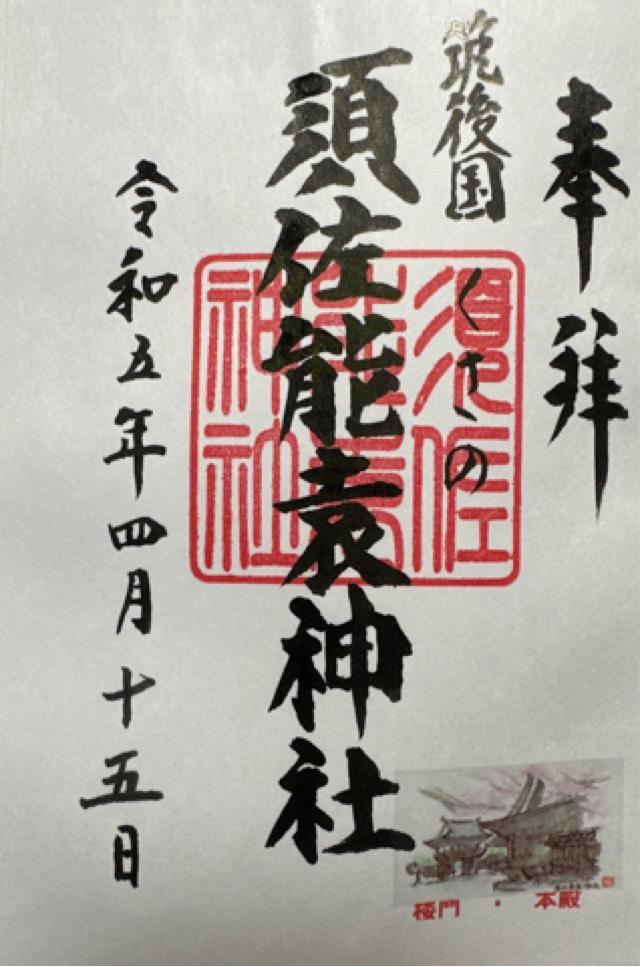 奉拝
筑後国
くさの
須佐能袁神社
令和五年四月十五日
須佐
神社
楼門・本殿